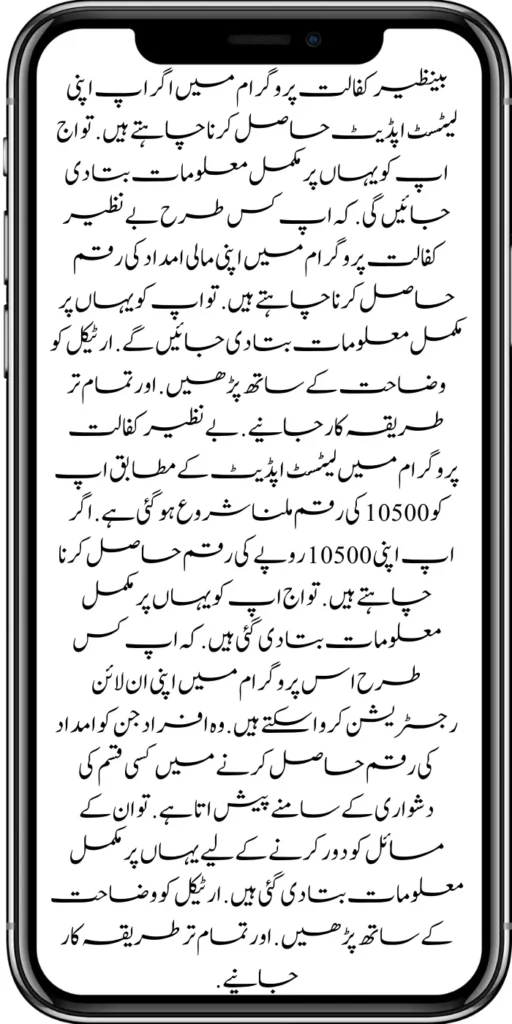 بینظیر کفالت پروگرام میں اگر اپ اپنی
لیٹسٹ اپڈیٹ حاصل کرنا چاہتے ہیں. تو اج
اپ کو یہاں پر مکمل معلومات بتا دی
جائیں گی. کہ اپ کس طرح بے نظیر
کفالت پروگرام میں اپنی مالی امداد کی رقم
حاصل کرنا چاہتے ہیں. تو اپ کو یہاں پر
مکمل معلومات بتا دی جائیں گے. ارٹیکل کو
وضاحت کے ساتھ پڑھیں. اور تمام تر
طریقہ کار جانیے. بے نظیر کفالت
پروگرام میں لیٹسٹ اپڈیٹ کے مطابق اپ
کو 10500 کی رقم ملنا شروع ہو گئی ہے. اگر
اپ اپنی 10500 روپے کی رقم حاصل کرنا
چاہتے ہیں. تو اج اپ کو یہاں پر مکمل
معلومات بتا دی گئی ہیں. کہ اپ کس
طرح اس پروگرام میں اپنی ان لائن
رجسٹریشن کروا سکتے ہیں. وہ افراد جن کو امداد
کی رقم حاصل کرنے میں کسی قسم کی
دشواری کے سامنے پیش اتا ہے. تو ان کے
مسائل کو دور کرنے کے لیے یہاں پر مکمل
معلومات بتا دی گئی ہیں. ارٹیکل کو وضاحت
کے ساتھ پڑھیں. اور تمام تر طریقہ کار
جانیے.